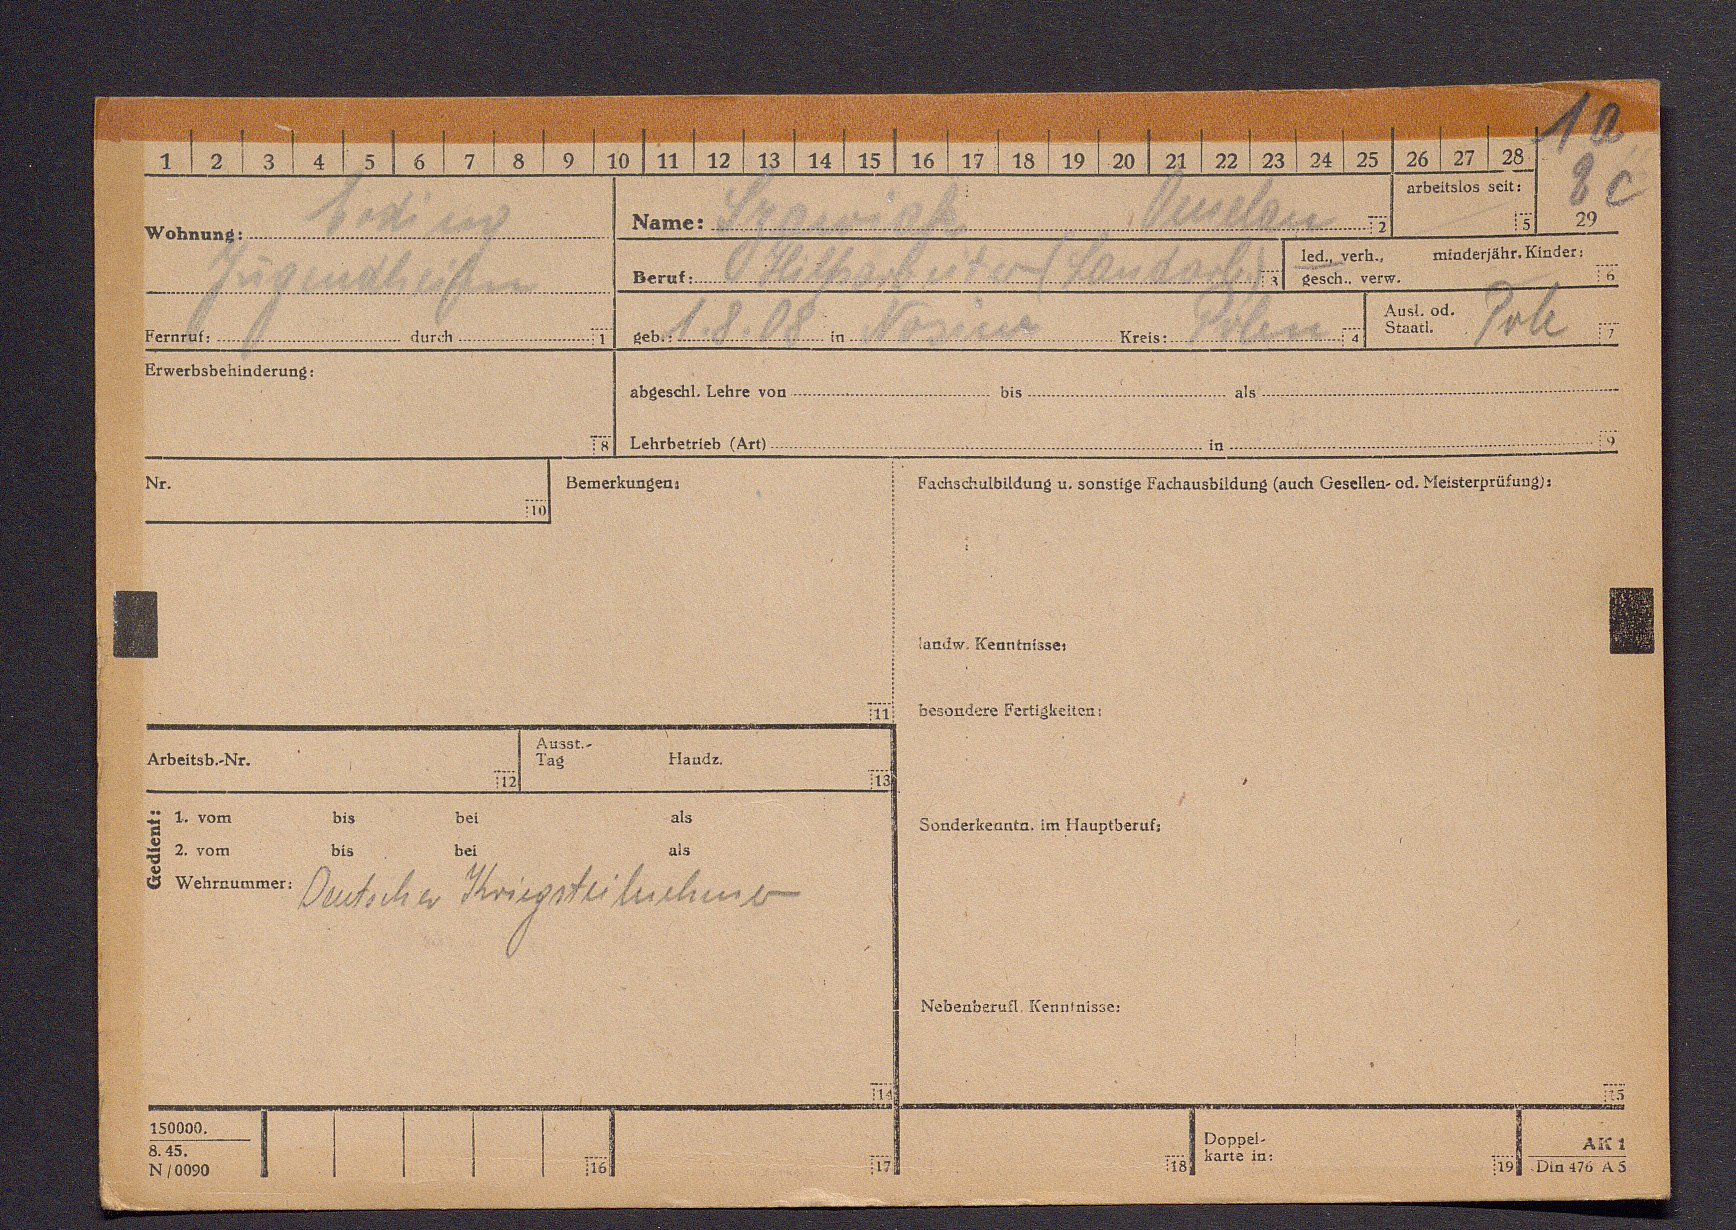 1a
1 2 3 4 5 6 7 8 9 10 11 12 13 14 15 16 17 18 19 20 21 22 23 24 25 26 27 28
8c
29
Wohnung:
Name: 2
arbeitslos seit: 5
Beruf: Hilfsarbeiter (Landarb.) 3
led., verh., minderjähr. Kinder:
gesch., verw. 6
Fernruf: durch 1
geb.: 1.8.08 in Kreis: Polen 4
Ausl. od.
Staatl. Pole 7
Erwerbsbehinderung: 8
abgeschl. Lehre von bis als
Lehrbetrieb (Art) in 9
Nr. 10
Bemerkungen: 11
Fachschulbildung u. sonstige Fachausbildung (auch Gesellen- od. Meisterprüfung):
landw. Kenntnisse:
besondere Fertigkeiten:
Arbeitsb.-Nr. 12
Ausst.-
Tag Handz. 13
Gedient:
1. vom bis bei als
2. vom bis bei als
Wehrnummer: Deutscher Kriegsteilnehmer
14
Sonderkenntn. im Hauptberuf:
Nebenberufl. Kenntnisse:
15
150000.
8. 45.
N/0090
16
17
18
Doppel-
karte in: 19
AK 1
Din 476 A 5